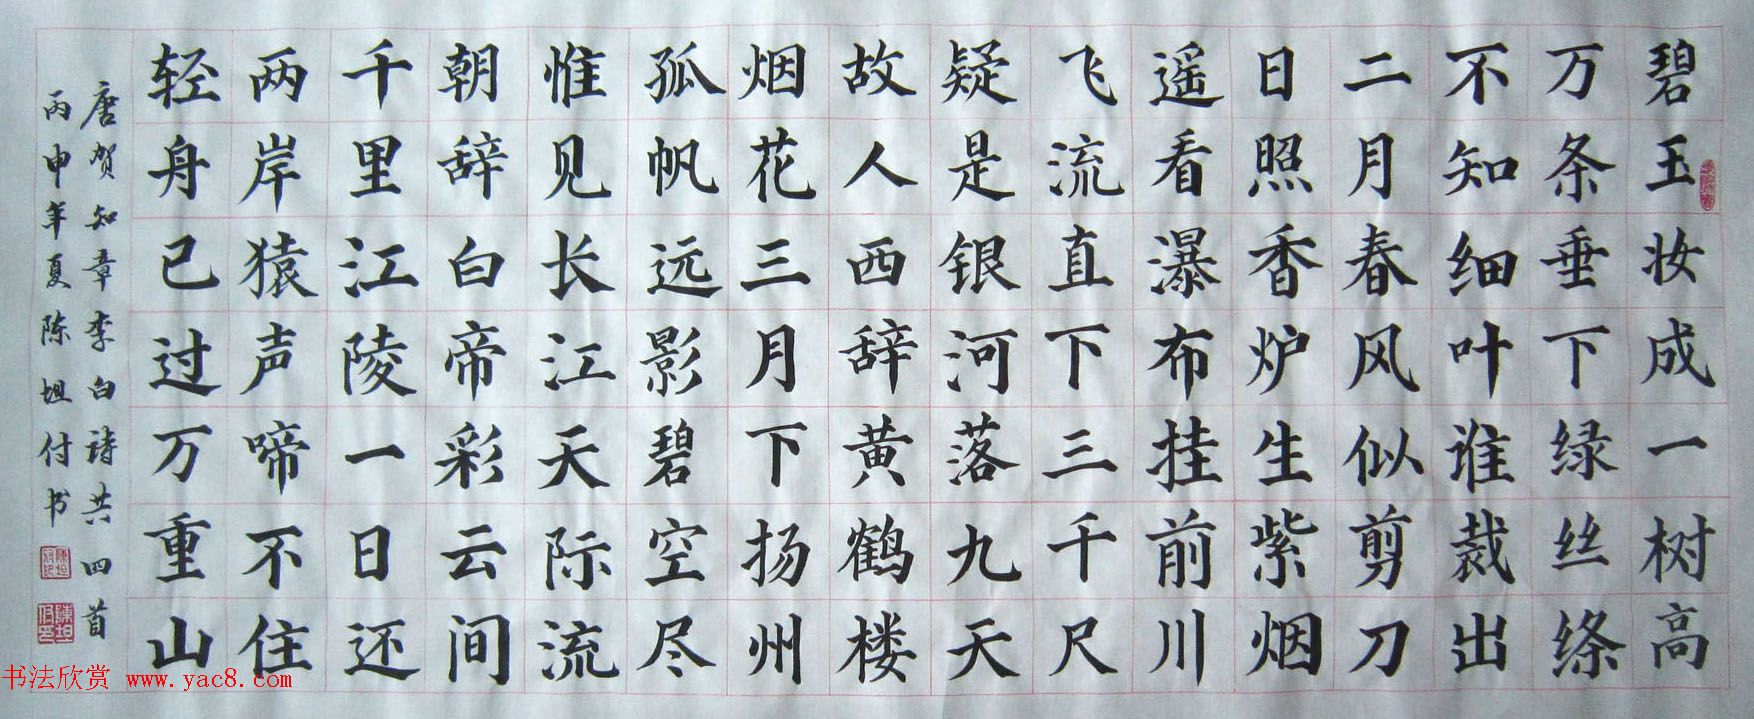 碧玉妆成一树高
万条垂下绿丝绦
不知细叶谁裁出
二月春风似剪刀
日照香炉生紫烟
遥看瀑布挂前川
飞流直下三千尺
疑是银河落九天
故人西辞黄鹤楼
烟花三月下扬州
孤帆远影碧空尽
惟见长江天际流
朝辞白帝彩云间
千里江陵一日还
两岸猿声啼不住
轻舟已过万重山
唐贺知章李白诗共四首
丙申年夏陈坦付书
书法欣赏 www.yac8.com